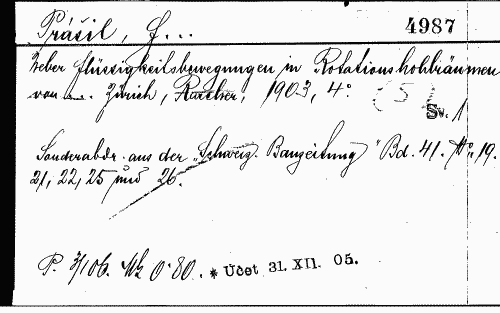 Prášil, F... 4987
Ueber Flüssigkeitsbewegungen in Rotationshohlräumen
von ... Zürich, Rascher, 1903, 4°. (5)
Sv. 1
Sonderabdr. aus der "Schweiz. Bauzeitung" Bd. 41. No. 19.
21, 22, 25 und 26.
P. 3/106. Mk 0.80. * Účet 31. XII. 05.